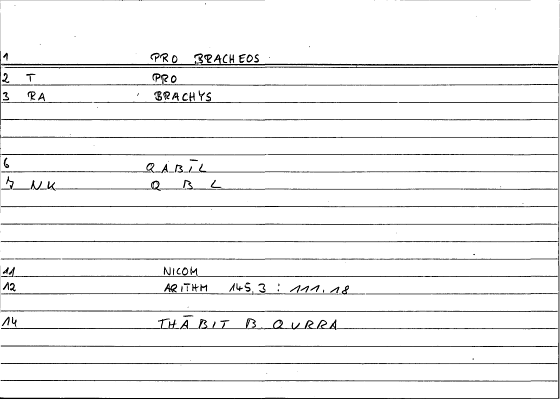 1 PRO BRACHEOS
2 T PRO
3 RA BRACHYS
6 QABĪL
7 NK Q B L
11 NICOM
12 ARITHM 145,3 : 111,18
14 THĀBIT B QURRA